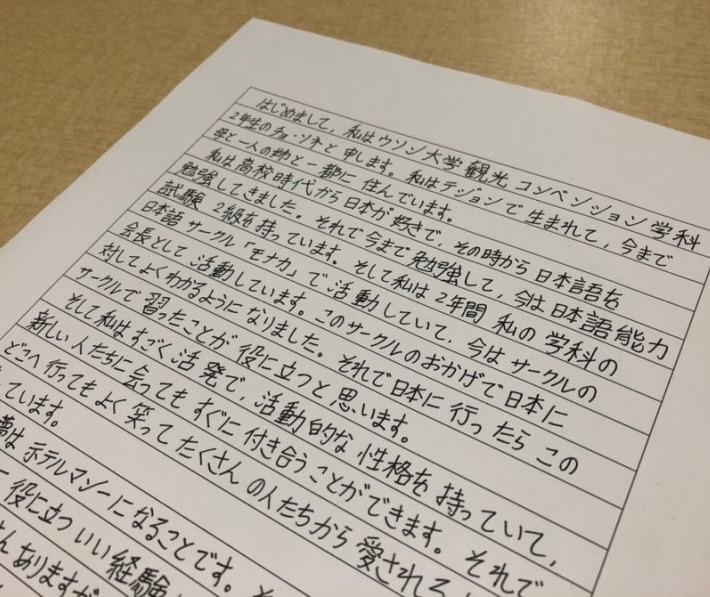 はじめまして、私はウソン大学 観光 コンベンション学科
2年生のチョ・ソネと申します。私はテジョンで生まれて、今まで
母と一人の姉と一都に住んでいます。
私は高校時代から日本が好きで、その時から日本語を
勉強してきました。それで今まで勉強して、今は日本語能力
試験 2級を持っています。そして私は2年間 私の学科の
日本語サークル「モナカ」で活動していて、今はサークルの
会長として活動しています。このサークルのおかげで日本に
対してよくわかるようになりました。それで日本に行ったらこの
サークルで習ったことが役に立つと思います。
そして私はすごく活発で、活動的な性格を持っていて、
新しい人たちに会ってもすぐに付き合うことができます。それで
どこへ行ってもよく笑ってたくさんの人たちから愛される
ています。
夢はホテルマンーになることです。そ
役に立ついい経験
さんありますが